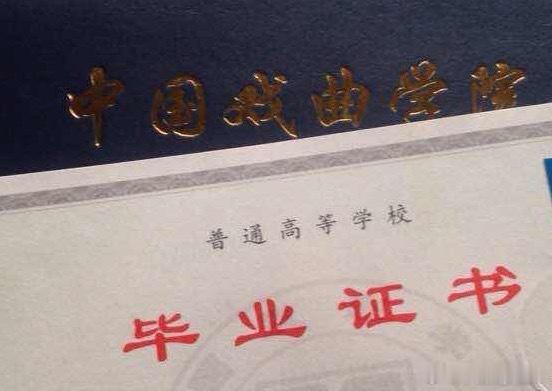 中国戏曲学院
普通高等学校
毕业证书